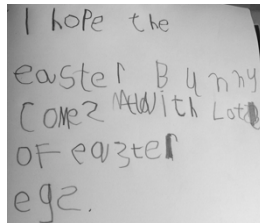 I hope the
easter Bunny
comez with Lot
OF eazter
egz.